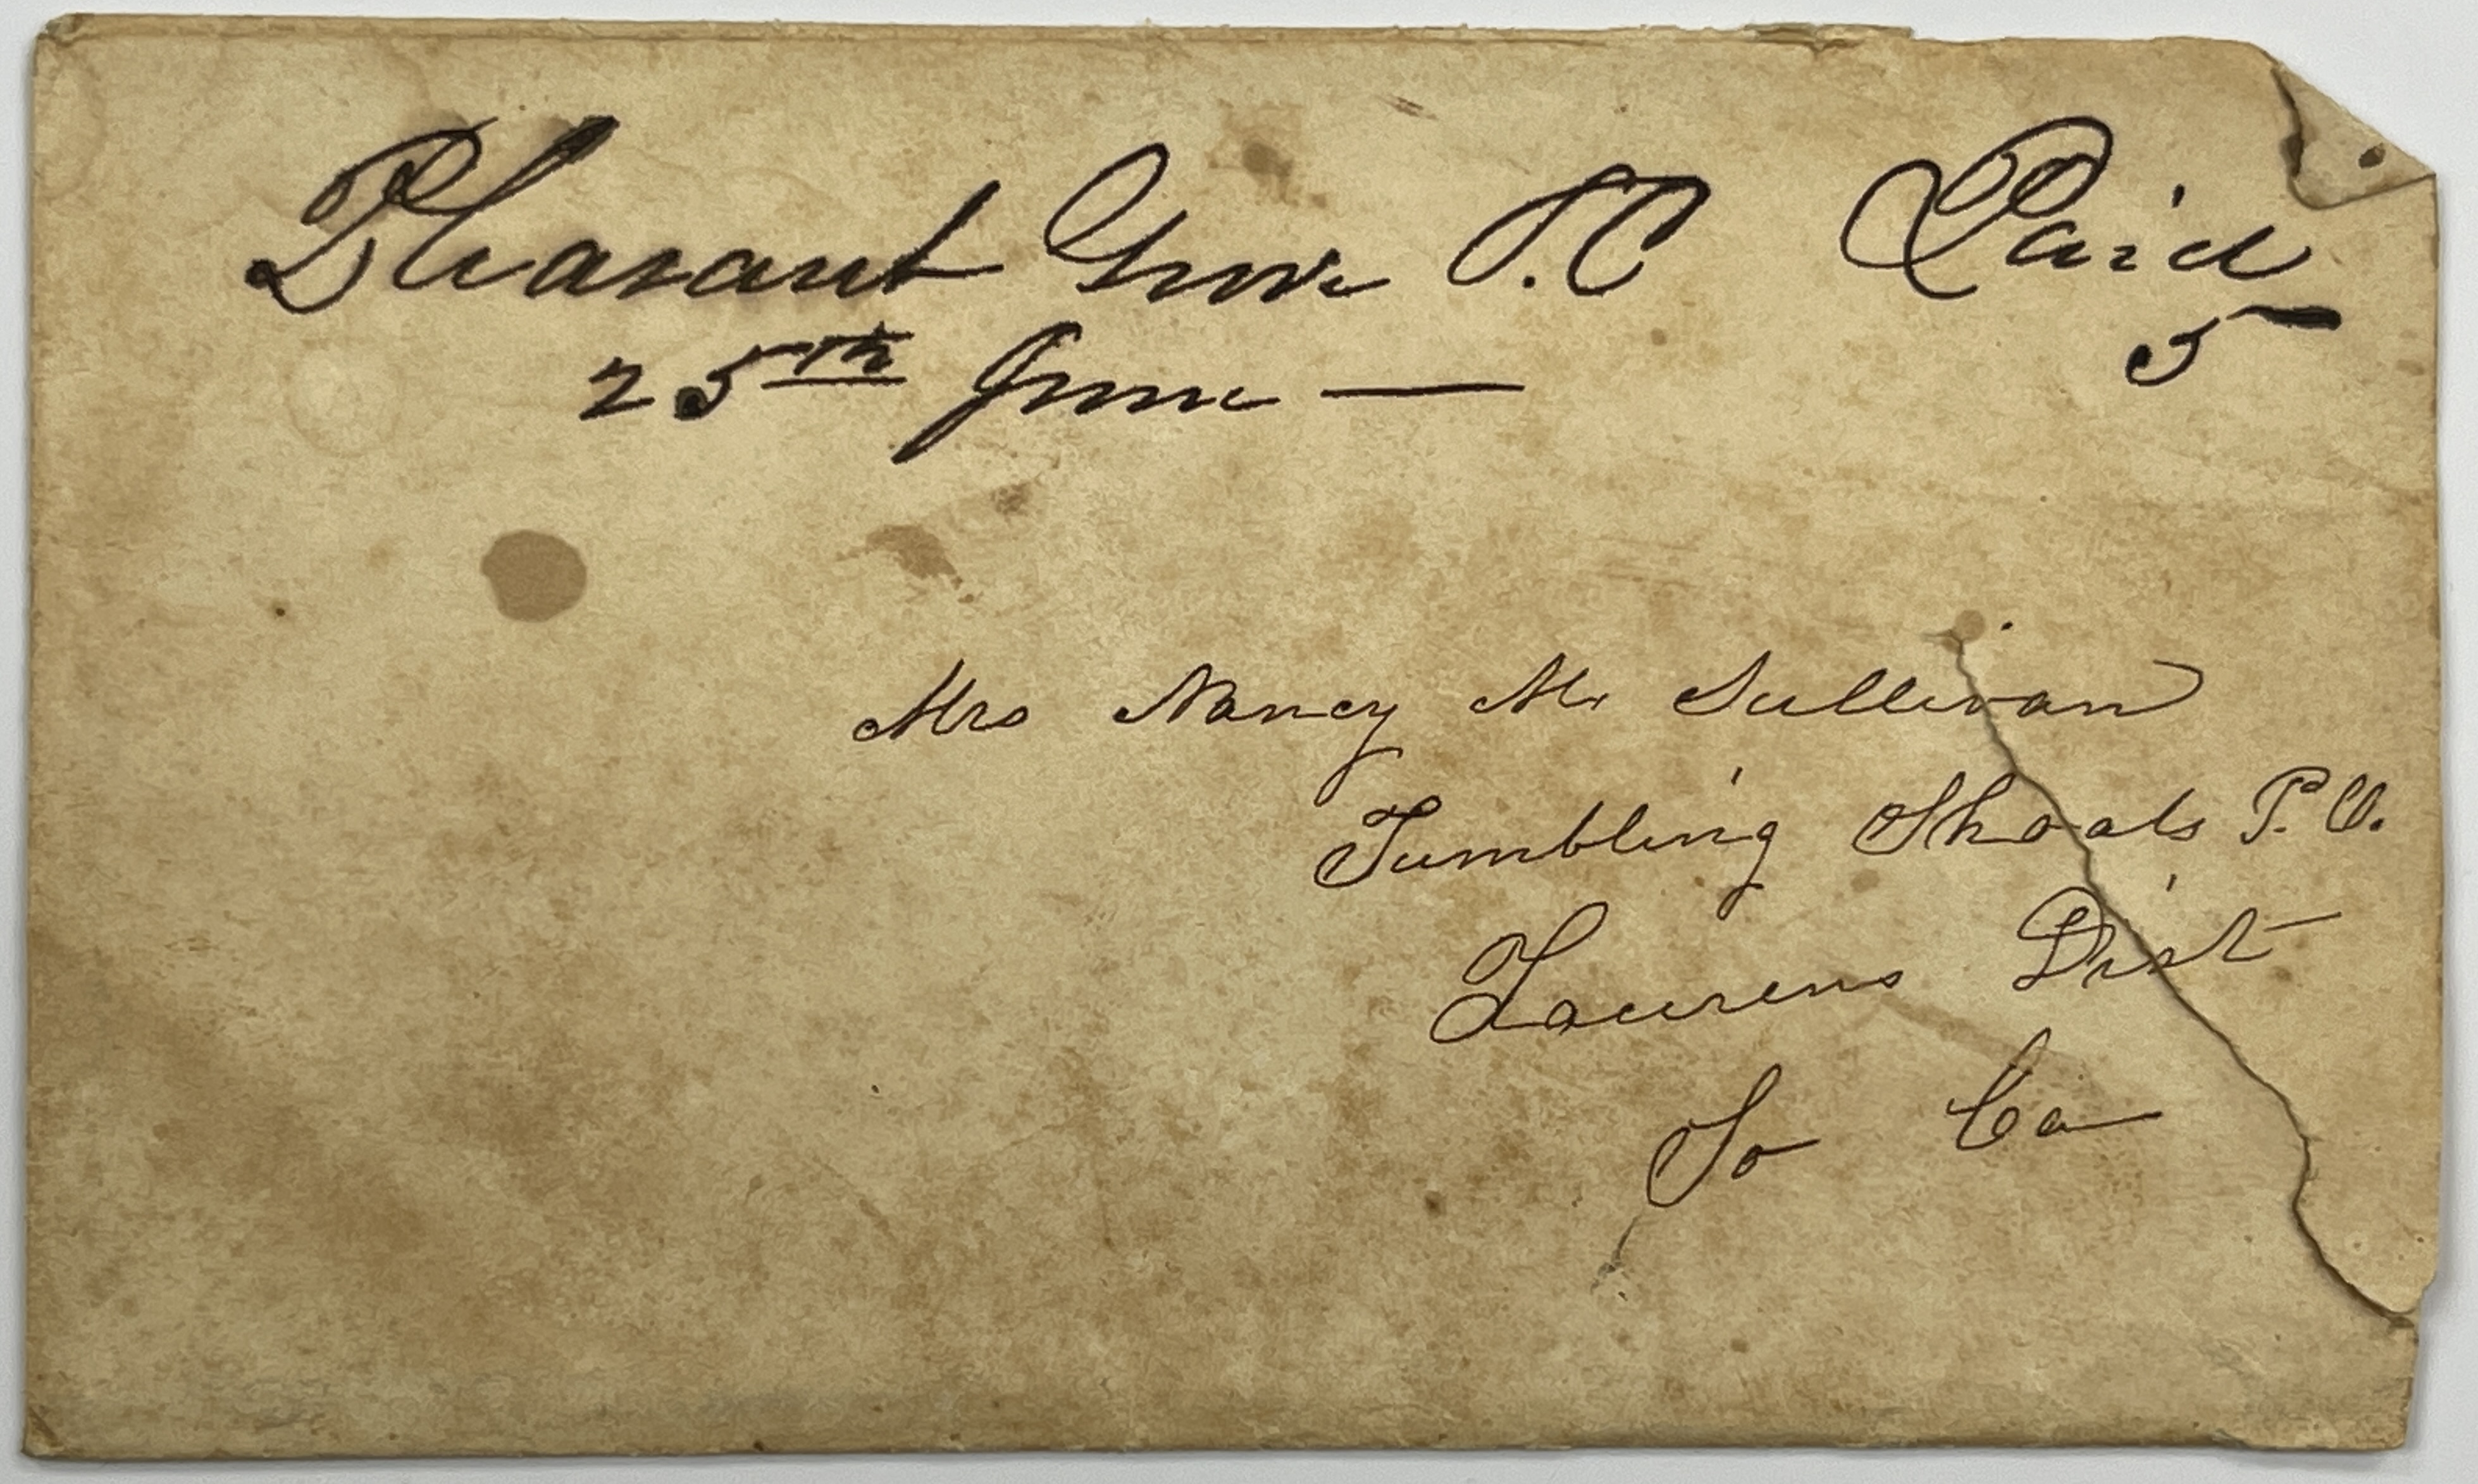 Pleasant Grove S.C Paid
25th June — 5
Mrs Nancy M. Sullivan
Tumbling Shoals P.O.
Laurens Dist
So Ca